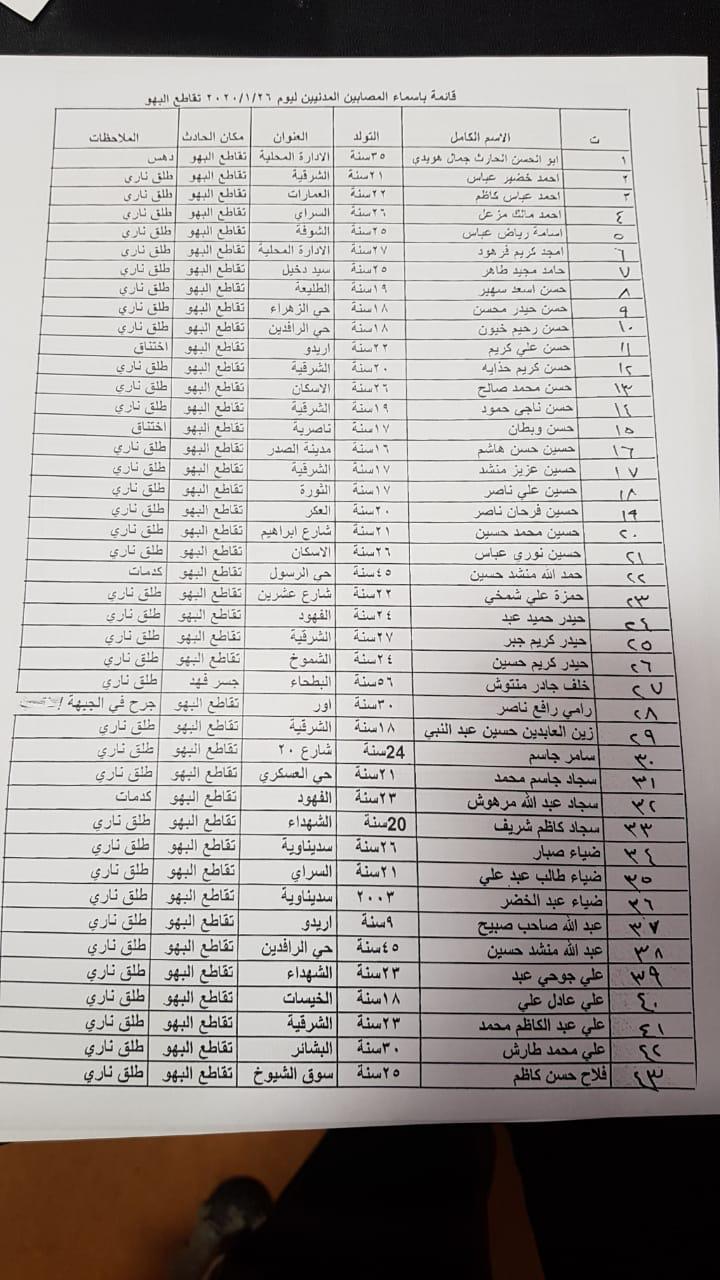 قائمة باسماء المصابين المدنيين ليوم ٢٠٢٠/١/٢٦ تقاطع البهو
ت الاسم الكامل التولد العنوان مكان الحادث الملاحظات
١ ابو الحسن الحارث جمال هويدي ٣٥سنة الادارة المحلية تقاطع البهو دهس
٢ احمد خضير عباس ٢١سنة الشرقية تقاطع البهو طلق ناري
٣ احمد عباس كاظم ٢٢سنة العمارات تقاطع البهو طلق ناري
٤ احمد مالك مزعل ٢٦سنة السراي تقاطع البهو طلق ناري
٥ اسامة رياض عباس ٢٥سنة الشوفة تقاطع البهو طلق ناري
٦ امجد كريم فرهود ٢٧سنة الادارة المحلية تقاطع البهو طلق ناري
٧ حامد مجيد طاهر ٢٥سنة سيد دخيل تقاطع البهو طلق ناري
٨ حسن اسعد سهير ١٩سنة الطليعة تقاطع البهو طلق ناري
٩ حسن حيدر محسن ١٨سنة حي الزهراء تقاطع البهو طلق ناري
١٠ حسن رحيم خيون ١٨سنة حي الرافدين تقاطع البهو طلق ناري
١١ حسن علي كريم ٢٢سنة اريدو تقاطع البهو اختناق
١٢ حسن كريم حذايه ٢٠سنة الشرقية تقاطع البهو طلق ناري
١٣ حسن محمد صالح ٢٦سنة الاسكان تقاطع البهو طلق ناري
١٤ حسن ناجي حمود ١٩سنة الشرقية تقاطع البهو طلق ناري
١٥ حسن وبطان ١٧سنة ناصرية تقاطع البهو اختناق
١٦ حسين حسن هاشم ١٦سنة مدينة الصدر تقاطع البهو طلق ناري
١٧ حسين عزيز منشد ١٧سنة الشرقية تقاطع البهو طلق ناري
١٨ حسين علي ناصر ١٧سنة الثورة تقاطع البهو طلق ناري
١٩ حسين فرحان ناصر ٢٠سنة العكر تقاطع البهو طلق ناري
٢٠ حسين محمد حسين ٢١سنة شارع ابراهيم تقاطع البهو طلق ناري
٢١ حسين نوري عباس ٢٦سنة الاسكان تقاطع البهو طلق ناري
٢٢ حمد الله منشد حسين ٤٥سنة حي الرسول تقاطع البهو كدمات
٢٣ حمزة علي شمخي ٢٢سنة شارع عشرين تقاطع البهو طلق ناري
٢٤ حيدر حميد عبد ٢٤سنة الفهود تقاطع البهو طلق ناري
٢٥ حيدر كريم جبر ٢٧سنة الشرقية تقاطع البهو طلق ناري
٢٦ حيدر كريم حسين ٢٤سنة الشموخ تقاطع البهو طلق ناري
٢٧ خلف جادر منتوش ٥٦سنة البطحاء جسر فهد طلق ناري
٢٨ رامي رافع ناصر ٣٠سنة اور تقاطع البهو جرح في الجبهة
٢٩ زين العابدين حسين عبد النبي ١٨سنة الشرقية تقاطع البهو طلق ناري
٣٠ سامر جاسم 24سنة شارع ٢٠ تقاطع البهو طلق ناري
٣١ سجاد جاسم محمد ٢١سنة حي العسكري تقاطع البهو طلق ناري
٣٢ سجاد عبد الله مرهوش ٢٣سنة الفهود تقاطع البهو كدمات
٣٣ سجاد كاظم شريف 20سنة الشهداء تقاطع البهو طلق ناري
٣٤ ضياء صبار ٢٦سنة سديناوية تقاطع البهو طلق ناري
٣٥ ضياء طالب عبد علي ٢١سنة السراي تقاطع البهو طلق ناري
٣٦ ضياء عبد الخضر ٢٠٠٣ سديناوية تقاطع البهو طلق ناري
٣٧ عبد الله صاحب صبيح ٩سنة اريدو تقاطع البهو طلق ناري
٣٨ عبد الله منشد حسين ٤٥سنة حي الرافدين تقاطع البهو طلق ناري
٣٩ علي جوحي عبد ٢٣سنة الشهداء تقاطع البهو طلق ناري
٤٠ علي عادل علي ١٨سنة الخيسات تقاطع البهو طلق ناري
٤١ علي عبد الكاظم محمد ٢٣سنة الشرقية تقاطع البهو طلق ناري
٤٢ علي محمد طارش ٣٠سنة البشائر تقاطع البهو طلق ناري
٤٣ فلاح حسن كاظم ٢٥سنة سوق الشيوخ تقاطع البهو طلق ناري